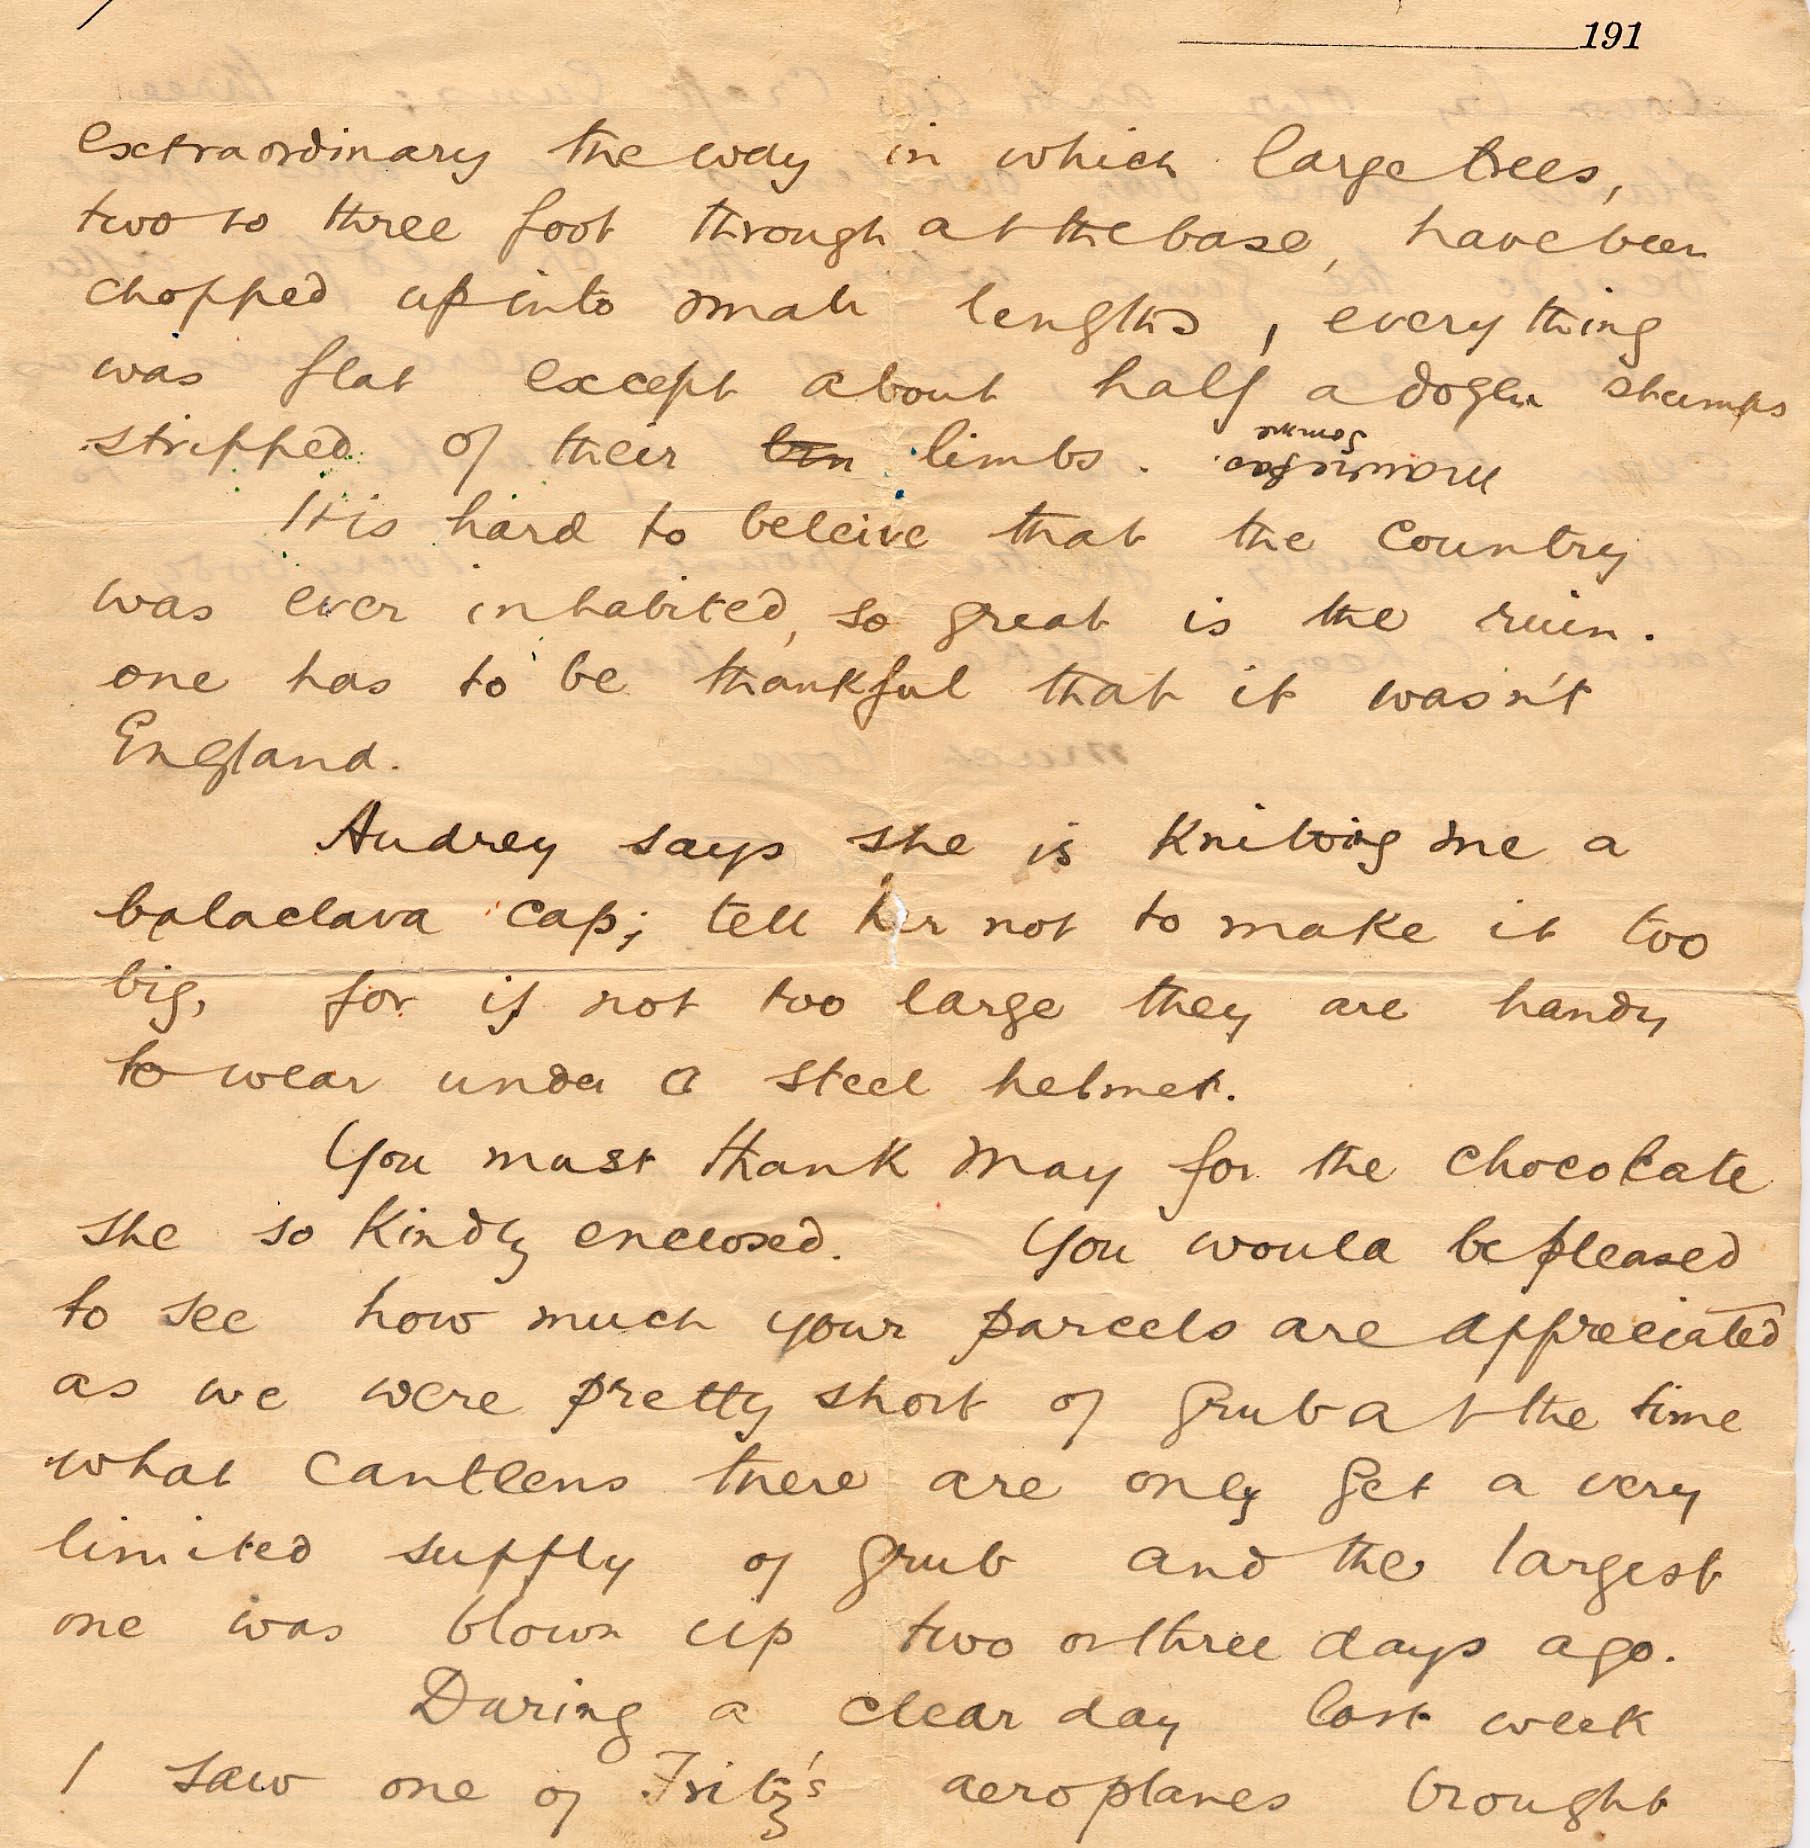 191
extraordinary the way in which large trees,
two to three foot through at the base, have been
chopped up into small lengths, everything
was flat except about half a dozen stumps
stripped of their lim limbs.
Somme
It is hard to beleive that the country
was ever inhabited, so great is the ruin.
one has to be thankful that it wasn't
England.
Audrey says she is Knitting me a
balaclava cap; tell her not to make it too
big, for if not too large they are handy
to wear under a steel helmet.
You must thank May for the chocolate
she so Kindly enclosed. You would be pleased
to see how much your parcels are appreciated
as we were pretty short of grub at the time
what canteens there are only get a very
limited supply of grub and the largest
one was blown up two or three days ago.
During a clear day last week
I saw one of Fritz's aeroplanes brought